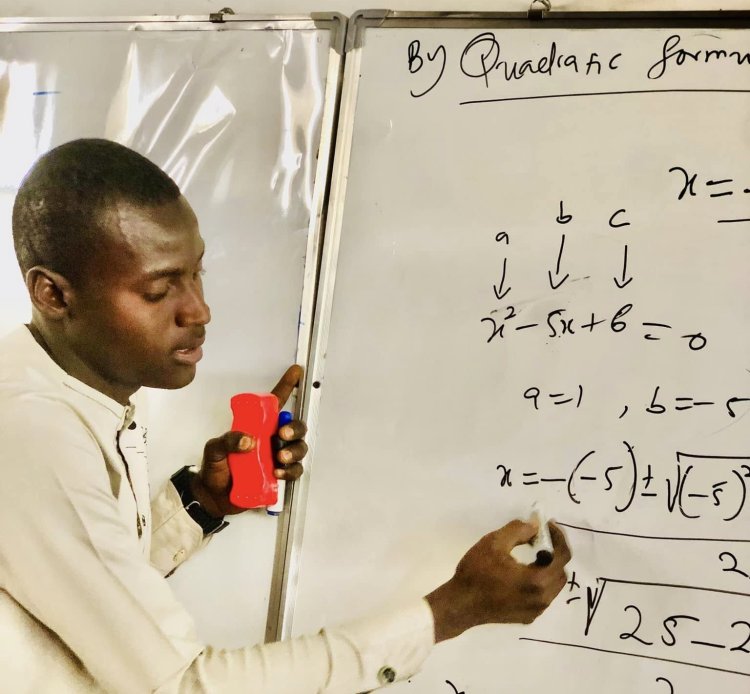 By Quadratic formu
x = -
a b c
x² - 5x + 6 = 0
a = 1 , b = - 5
x = - (-5) ± √(-5)²
2
± √25 - 2